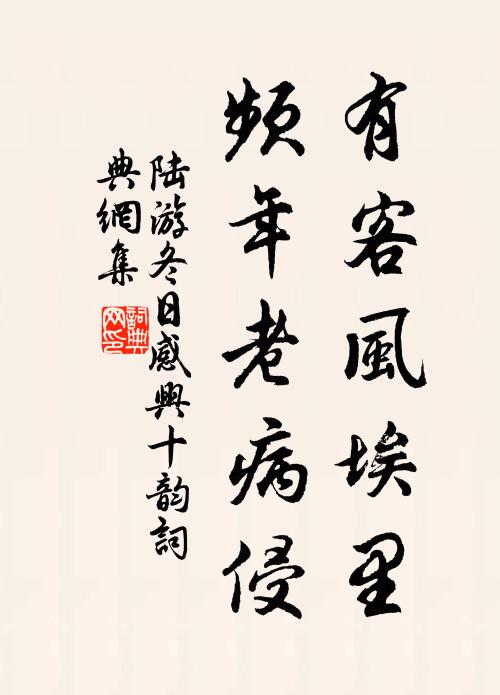 有客風埃里
頻年老病侵
陸游冬日感興十韵詞
典網集
詞典
网印